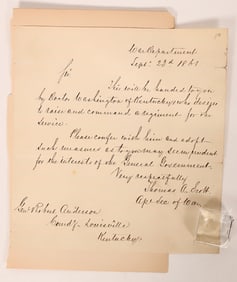 War Department
Sept. 22th 1861
Sir
This will be handed to you
by Doctor Washington of Kentucky who designs
to raise and command a regiment for our
service.
Please confer with him and adopt
such measures as to you may seem prudent
for the interests of the General Government.
Very respectfully
Thomas A. Scott
Apt Sec of War
Genl Robert Anderson
Comdg Louisville
Kentucky